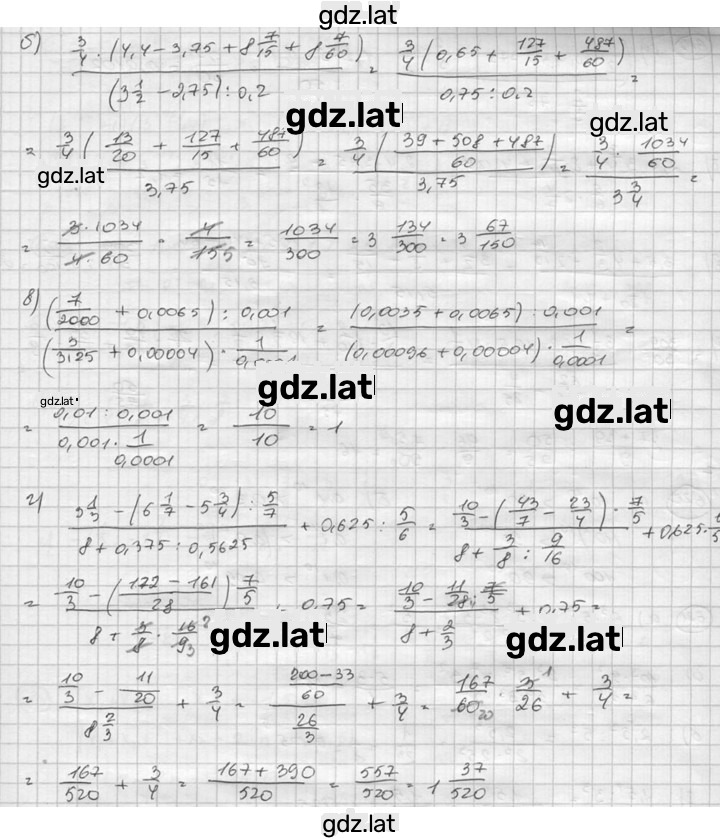 gdz.lat
б) 3/4 · (4,4 − 3,75 + 8 7/15 + 8 7/60) / (3 1/2 − 2,75) : 0,2 = 3/4 (0,65 + 127/15 + 487/60) / 0,75 : 0,2 =
gdz.lat
gdz.lat
= 3/4 (13/20 + 127/15 + 487/60) / 3,75 = 3/4 (39 + 508 + 487 / 60) / 3,75 = 3/4 · 1034/60 / 3 3/4 =
gdz.lat
= 3 · 1034 / 4 · 60 · 4/155 = 1034/300 = 3 134/300 = 3 67/150
в) (7/2000 + 0,0065) : 0,001 / (3/3125 + 0,00004) · 1/0,0001 = (0,0035 + 0,0065) : 0,001 / (0,00096 + 0,00004) · 1/0,0001 =
gdz.lat
gdz.lat
gdz.lat
= 0,01 : 0,001 / 0,001 · 1/0,0001 = 10/10 = 1
г) 3 1/3 − (6 1/7 − 5 3/4) : 5/7 / 8 + 0,375 : 0,5625 + 0,625 : 5/6 = 10/3 − (43/7 − 23/4) · 7/5 / 8 + 3/8 : 9/16 + 0,625 ·
= 10/3 − (172 − 161 / 28) 7/5 / 8 + 3/8 · 16 2/9 3 · 0.75 = 10/3 − 11/28 · 7/5 / 8 + 2/3 + 0.75 =
gdz.lat
gdz.lat
= 10/3 − 11/20 / 8 2/3 + 3/4 = 200 − 33 / 60 / 26/3 + 3/4 = 167/60 20 · 3 1/26 + 3/4 =
= 167/520 + 3/4 = 167 + 390 / 520 = 557/520 = 1 37/520
gdz.lat